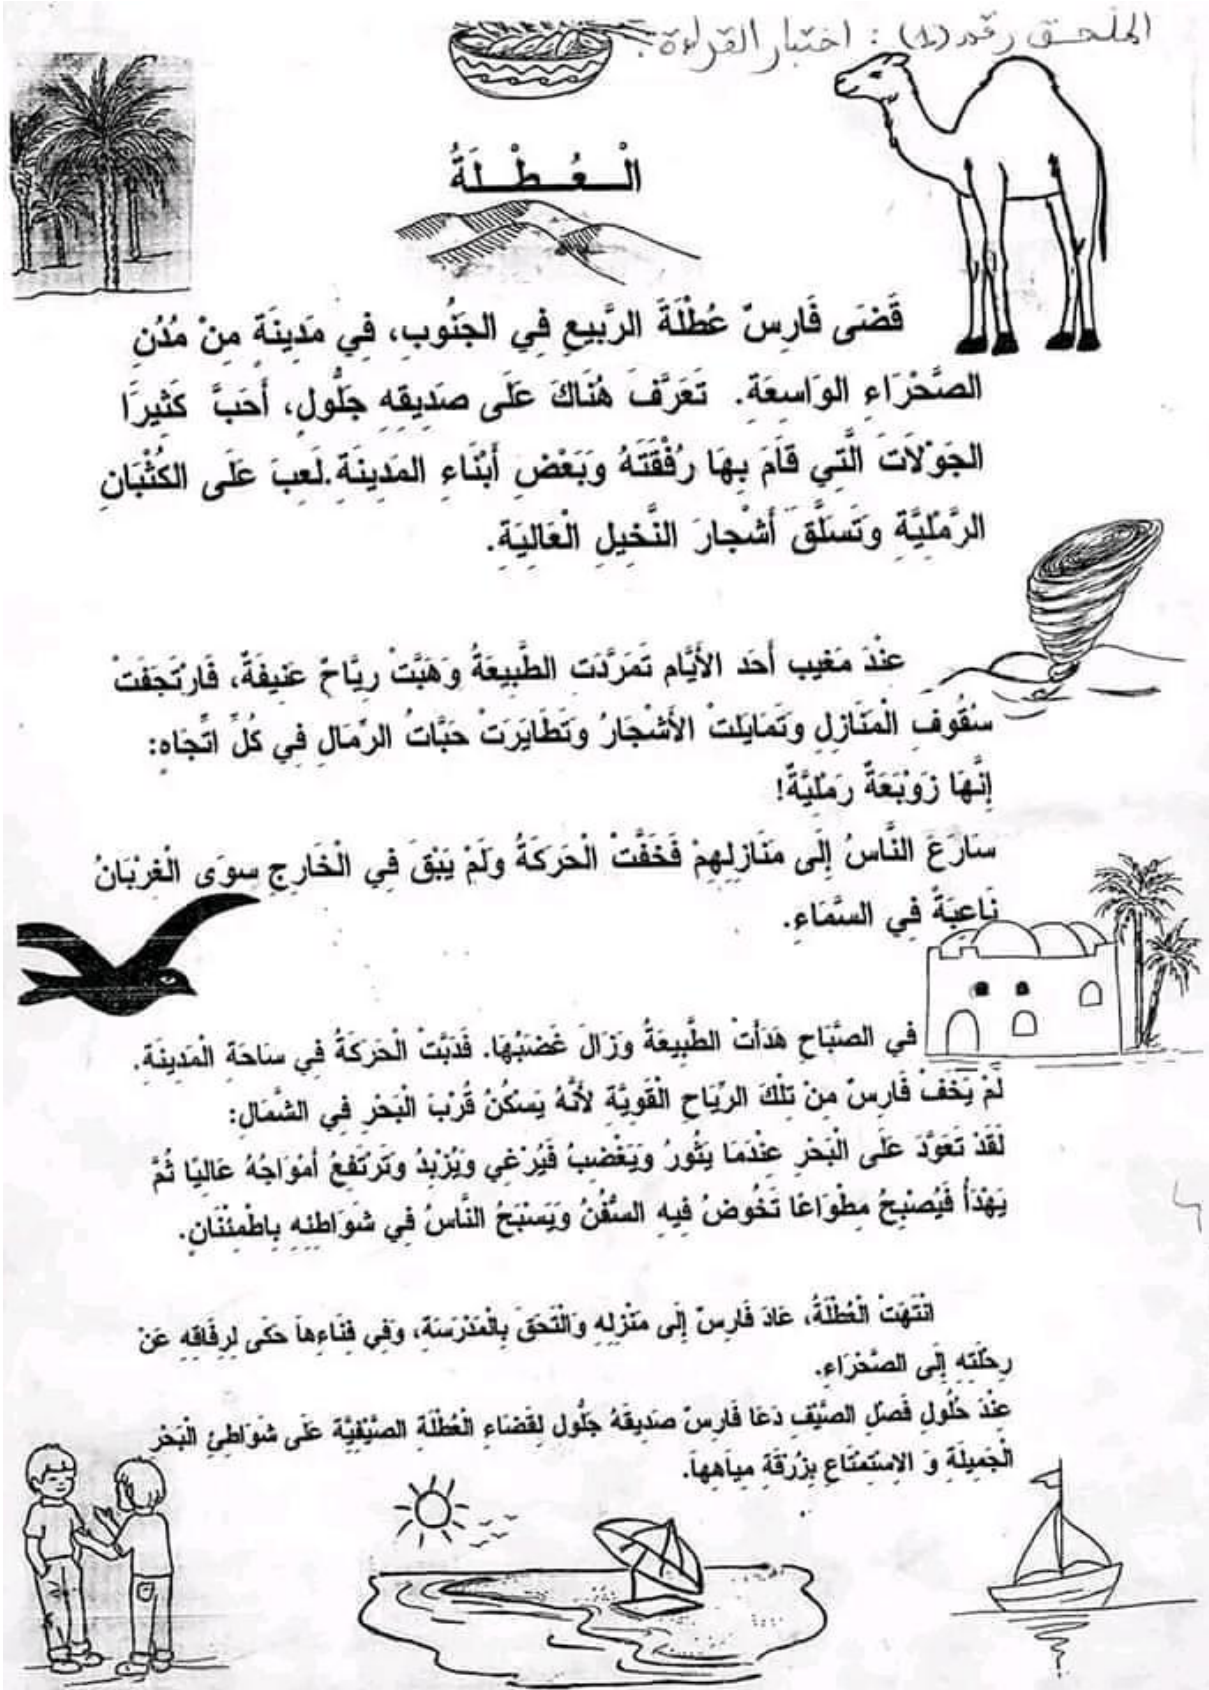 الملحق رقم (1) : اختبار القراءة :
الْعُطْلَةُ
قَضَى فَارِسٌ عُطْلَةَ الرَّبِيعِ فِي الجَنُوبِ، فِي مَدِينَةٍ مِنْ مُدُنِ
الصَّحْرَاءِ الوَاسِعَةِ. تَعَرَّفَ هُنَاكَ عَلَى صَدِيقِهِ جَلُّولٍ، أَحَبَّ كَثِيرًا
الجَوْلَاتَ الَّتِي قَامَ بِهَا رُفْقَتَهُ وَبَعْضِ أَبْنَاءِ المَدِينَةِ.لَعِبَ عَلَى الكُثْبَانِ
الرَّمْلِيَّةِ وَتَسَلَّقَ أَشْجارَ النَّخِيلِ الْعَالِيَةِ.
عِنْدَ مَغِيبِ أَحَدِ الأَيَّامِ تَمَرَّدَتِ الطَّبِيعَةُ وَهَبَّتْ رِيَّاحٌ عَنِيفَةٌ، فَارْتَجَفَتْ
سُقُوفِ الْمَنَازِلِ وَتَمَايَلتْ الأَشْجَارُ وَتَطَايَرَتْ حَبَّاتُ الرِّمَالِ فِي كُلِّ اتِّجَاهٍ:
إِنَّهَا زَوْبَعَةٌ رَمْلِيَّةٌ!
سَارَعَ النَّاسُ إِلَى مَنَازِلِهِمْ فَخَفَّتْ الْحَرَكَةُ وَلَمْ يَبْقَ فِي الْخَارِجِ سِوَى الْغِرْبَانُ
نَاعِبَةً فِي السَّمَاءِ.
في الصَّبَاحِ هَدَأَتْ الطَّبِيعَةُ وَزَالَ غَضَبُهَا. فَدَبَّتْ الْحَرَكَةُ فِي سَاحَةِ الْمَدِينَةِ.
لَمْ يَخَفْ فَارِسٌ مِنْ تِلْكَ الرِّيَاحِ الْقَوِيَّةِ لأَنَّهُ يَسْكُنُ قُرْبَ الْبَحْرِ فِي الشَّمَالِ:
لَقَدْ تَعَوَّدَ عَلَى الْبَحْرِ عِنْدَمَا يَثُورُ وَيَغْضِبُ فَيُرْغِي وَيُزْبِدُ وَتَرْتَفِعُ أَمْوَاجُهُ عَالِيًا ثُمَّ
يَهْدَأُ فَيُصْبِحُ مِطْوَاعًا تَخُوضُ فِيهِ السُّفُنُ وَيَسْبَحُ النَّاسُ فِي شَوَاطِئِهِ بِاطْمِئْنَانٍ.
انْتَهَتْ الْعُطْلَةُ، عَادَ فَارِسٌ إِلَى مَنْزِلِهِ وَالْتَحَقَ بِالْمَدْرَسَةِ، وَفِي فِنَاءِهَا حَكَى لِرِفَاقِهِ عَنْ
رِحْلَتِهِ إِلَى الصَّحْرَاءِ.
عِنْدَ حُلُولِ فَصْلِ الصَّيْفِ دَعَا فَارِسٌ صَدِيقَهُ جَلُّول لِقَضَاءِ الْعُطْلَةِ الصَّيْفِيَّةِ عَلَى شَوَاطِئِ الْبَحْرِ
الْجَمِيلَةِ وَ الاِسْتِمْتَاعِ بِزُرْقَةِ مِيَاهِهاَ.